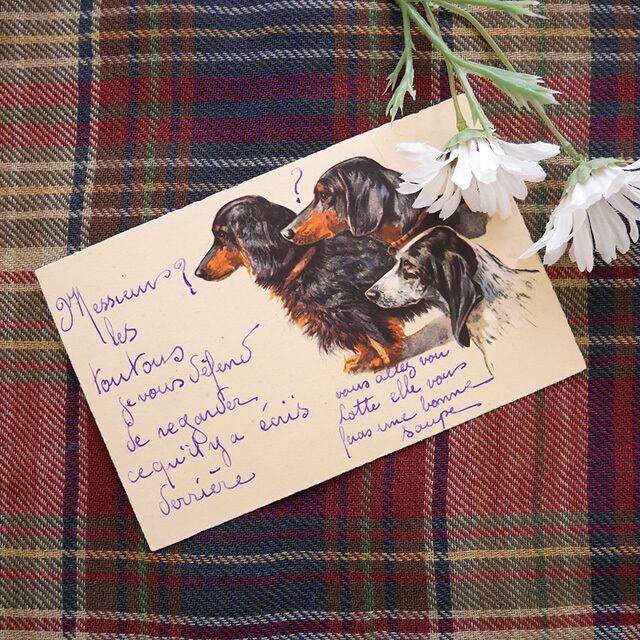 ?
Messieurs ?
les
toutous
je vous défend
de regarder
cequ'il y a écris
derrière
vous allez voir
Lotte elle vous
fras une bonne
soupe